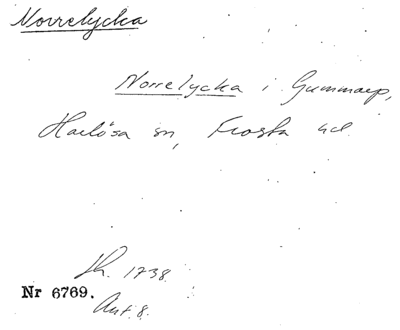 Norrelycka
Norrelycka i Gummarp,
Harlösa sn, Frosta hd.
Sk. 1738
Nr 6769.
Ant. 8.